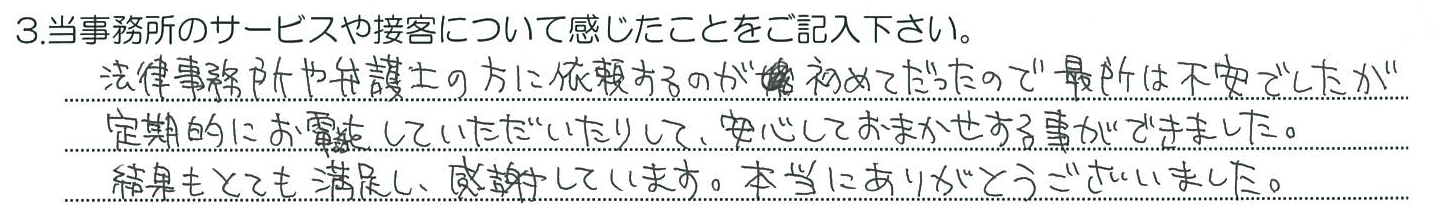 3.当事務所のサービスや接客について感じたことをご記入下さい。
法律事務所や弁護士の方に依頼するのが初めてだったので最所は不安でしたが
定期的にお電話していただいたりして、安心しておまかせする事ができました。
結果もとても満足し、感謝しています。本当にありがとうございました。